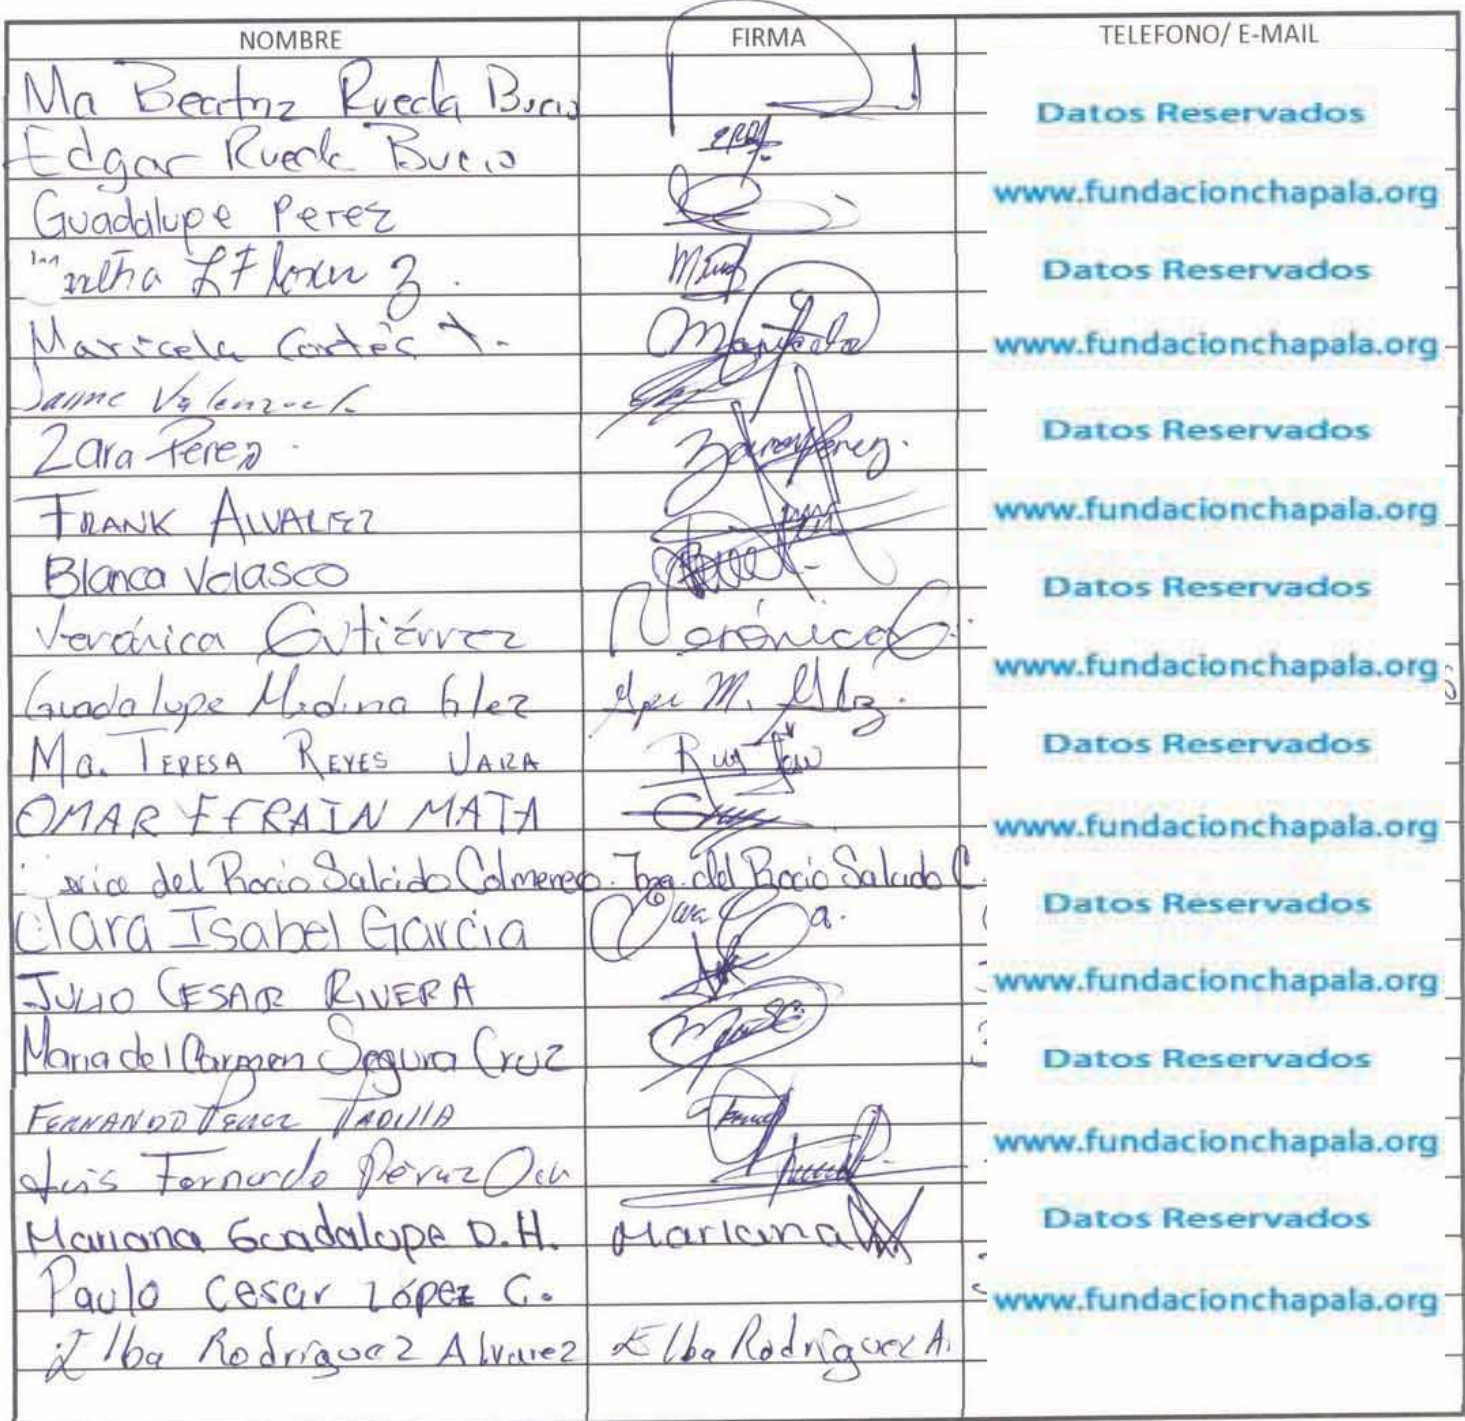 NOMBRE FIRMA TELEFONO/ E-MAIL
Ma Beatriz Rueda Bucio
Datos Reservados
Edgar Rueda Bucio
www.fundacionchapala.org
Guadalupe Perez
Datos Reservados
Maricela Cortés
www.fundacionchapala.org
Jaime Valenzuela
Datos Reservados
Zara Perez
FRANK ALVAREZ
www.fundacionchapala.org
Blanca Velasco
Datos Reservados
Verónica Gutiérrez Verónica G.
www.fundacionchapala.org
Guadalupe Medina Glez M. Glz.
Ma. TERESA REYES VARA
Datos Reservados
OMAR EFRAIN MATA
www.fundacionchapala.org
del Rocio Salcido Colmenero. del Rocio Salcido C.
Datos Reservados
Clara Isabel Garcia
JULIO CESAR RIVERA
www.fundacionchapala.org
Maria del Carmen Segura Cruz
Datos Reservados
FERNANDO PEREZ PADILLA
www.fundacionchapala.org
Luis Fernando Pérez
Datos Reservados
Mariana Guadalupe D.H. Mariana
Paulo Cesar López C.
www.fundacionchapala.org
Elba Rodríguez Alvarez Elba Rodríguez A.